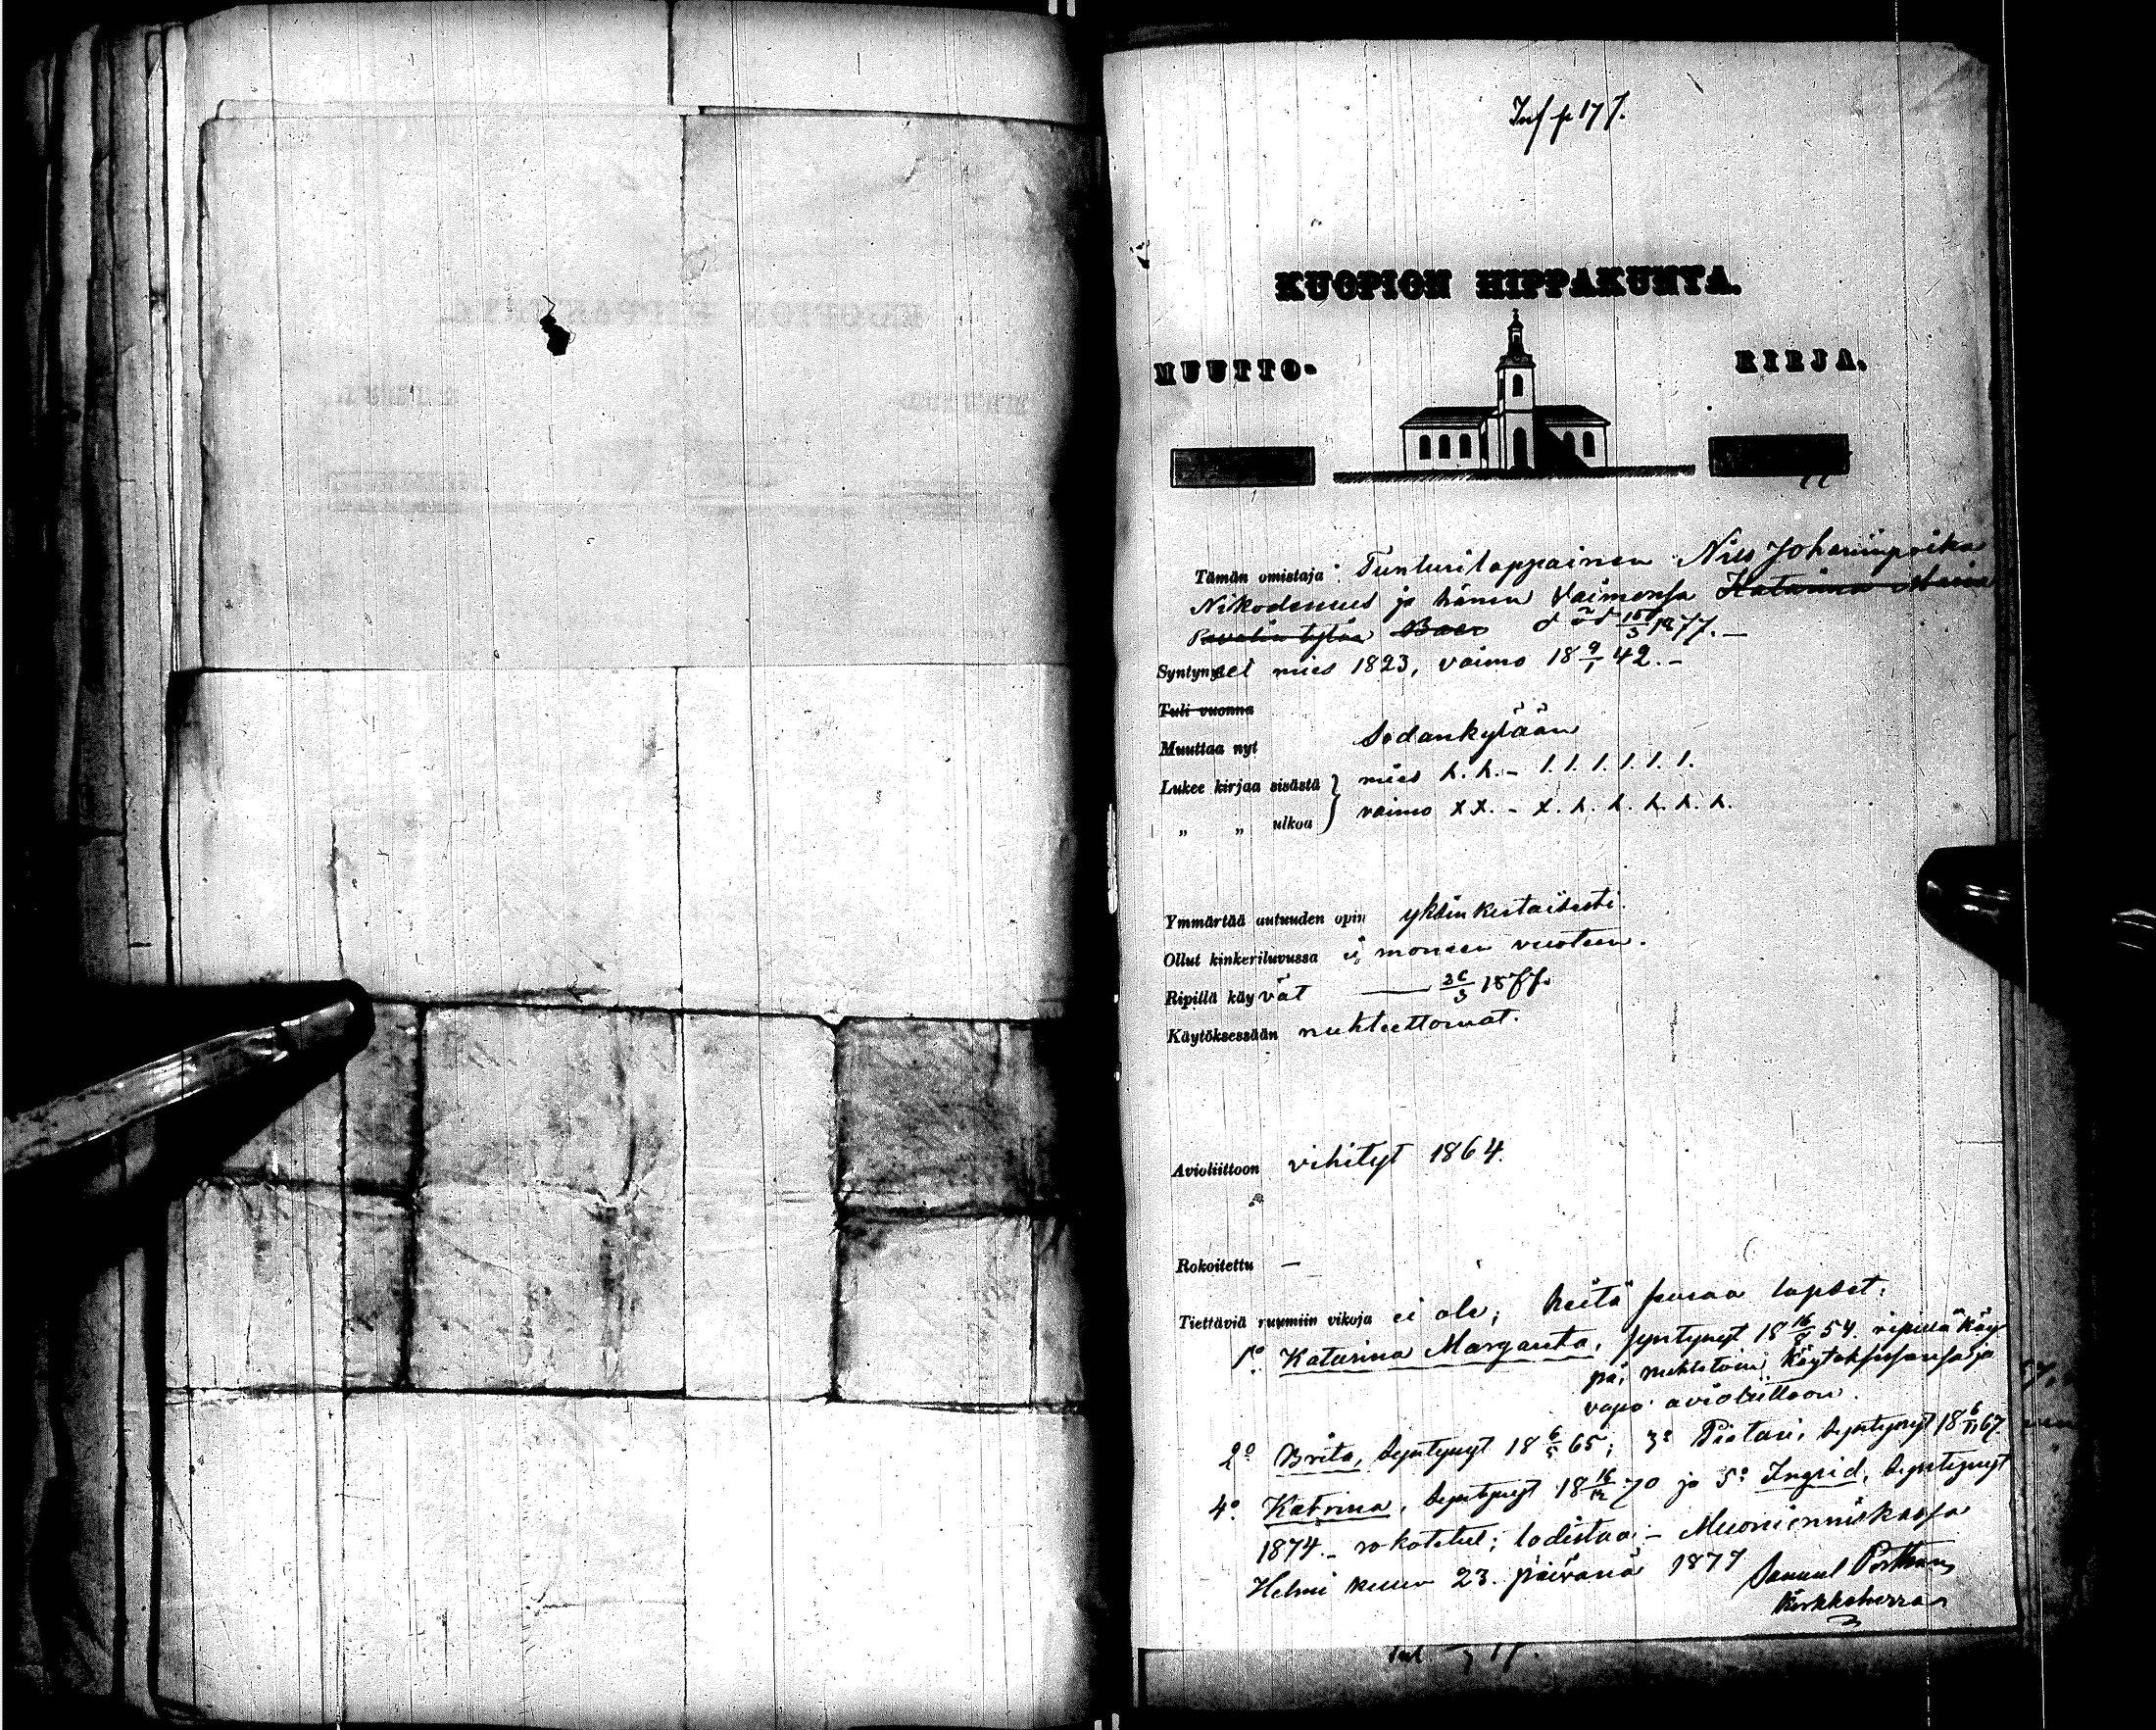 Inf p 177.
KUOPION HIPPAKUNTA.
MUUTTO- KIRJA.
Tämän omistaja: Tunturilappainen Nils Johaninpoika
Nikodemus ja hänen Vaimonsa Katarina Maria
död 15/3 1877. –
Syntyneet mies 1823, vaimo 18 9/1 42. –
Tuli vuonna
Muuttaa nyt Sodankylään
Lukee kirjaa sisästä } mies h. h. – 1. 1. 1. 1. 1. 1.
„ „ ulkoa } vaimo x x. – x. h. h. h. h. h.
Ymmärtää autuuden opin yksinkertaisesti.
Ollut kinkeriluvussa ei moneen vuoteen.
Ripillä käyvät
Käytöksessään nuhteettomat.
Avioliittoon vihityt 1864.
Rokoitettu –
Tiettäviä ruumiin vikoja ei ole; heitä seuraa lapset:
1:o Katarina Margareta, syntynyt 18 54. ripillä käy
vapa avioliittoon.
2:o Brita, syntynyt 18 65; 3:o Pietari, syntynyt 18 6/11 67.
4:o Katrina, syntynyt 18 16/12 70 ja 5:o Ingrid, syntynyt
1874. – rokotetut; todistaa: – Muonionniskassa
Helmi kuun 23. päivänä 1877 Samuel Porthan
Kirkkoherra